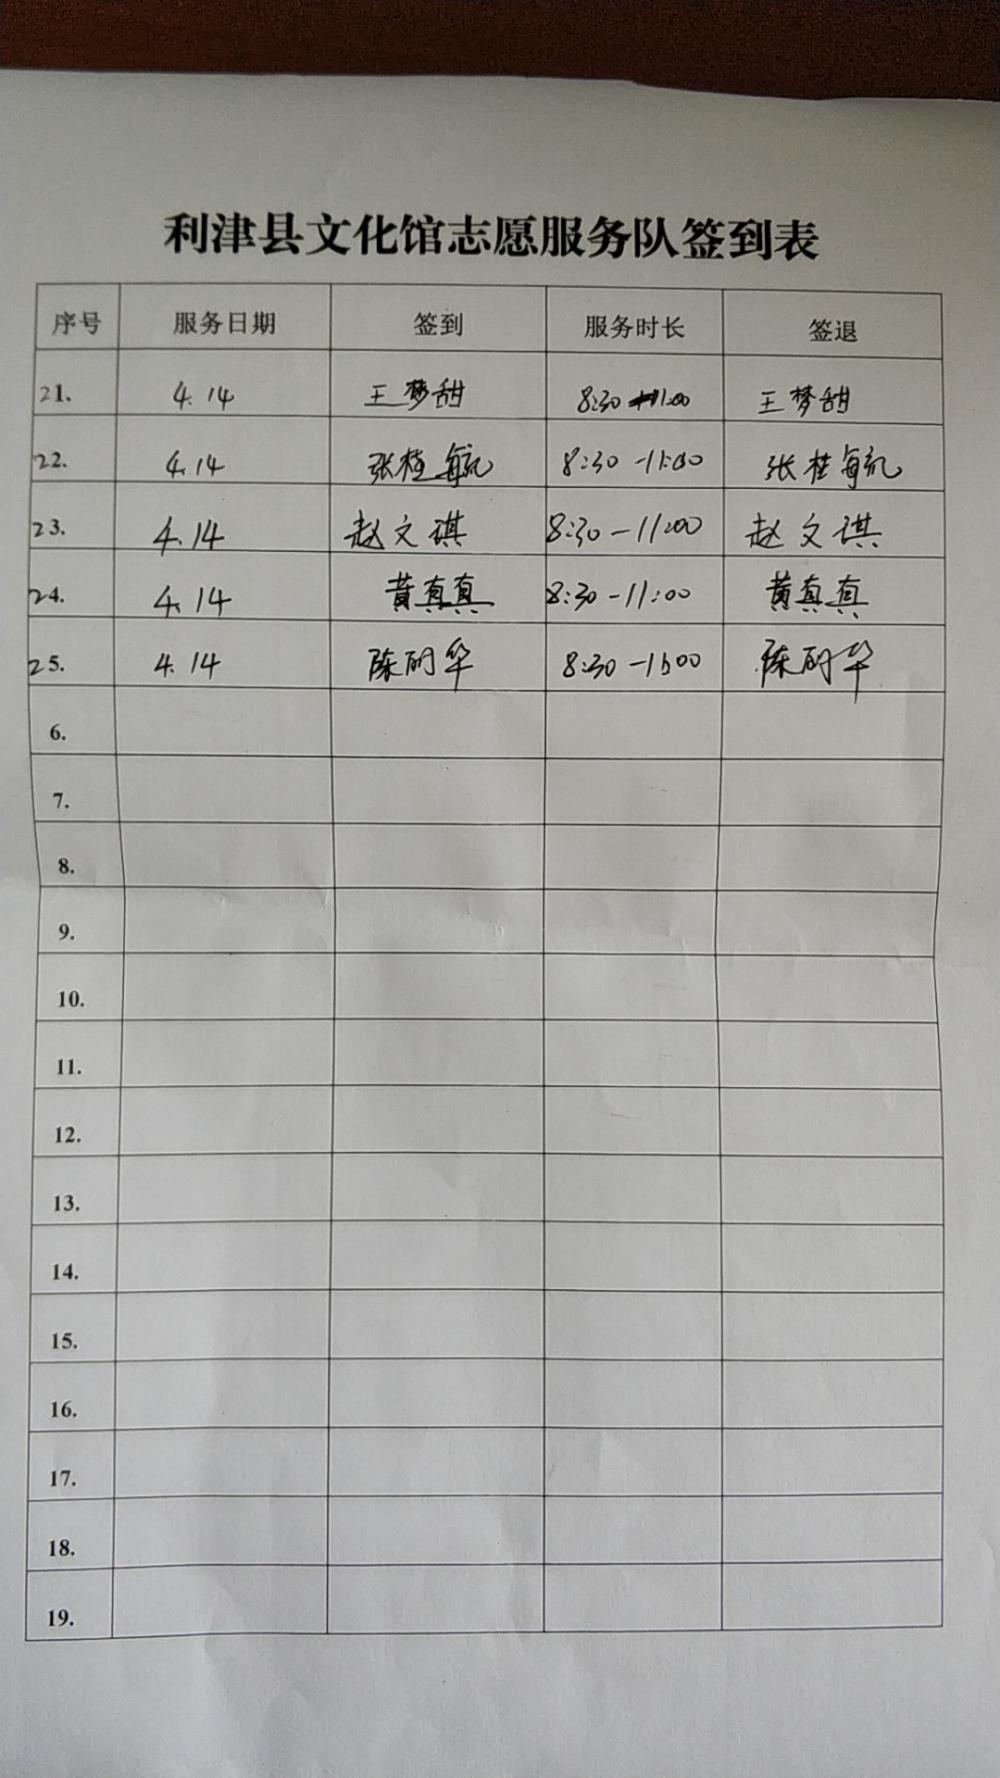 利津县文化馆志愿服务队签到表
序号 服务日期 签到 服务时长 签退
21. 4.14 王梦甜 8:30-11:00 王梦甜
22. 4.14 张桂毓 8:30-11:00 张桂毓
23. 4.14 赵文琪 8:30-11:00 赵文琪
24. 4.14 黄真真 8:30-11:00 黄真真
25. 4.14 陈明华 8:30-11:00 陈明华
6.
7.
8.
9.
10.
11.
12.
13.
14.
15.
16.
17.
18.
19.